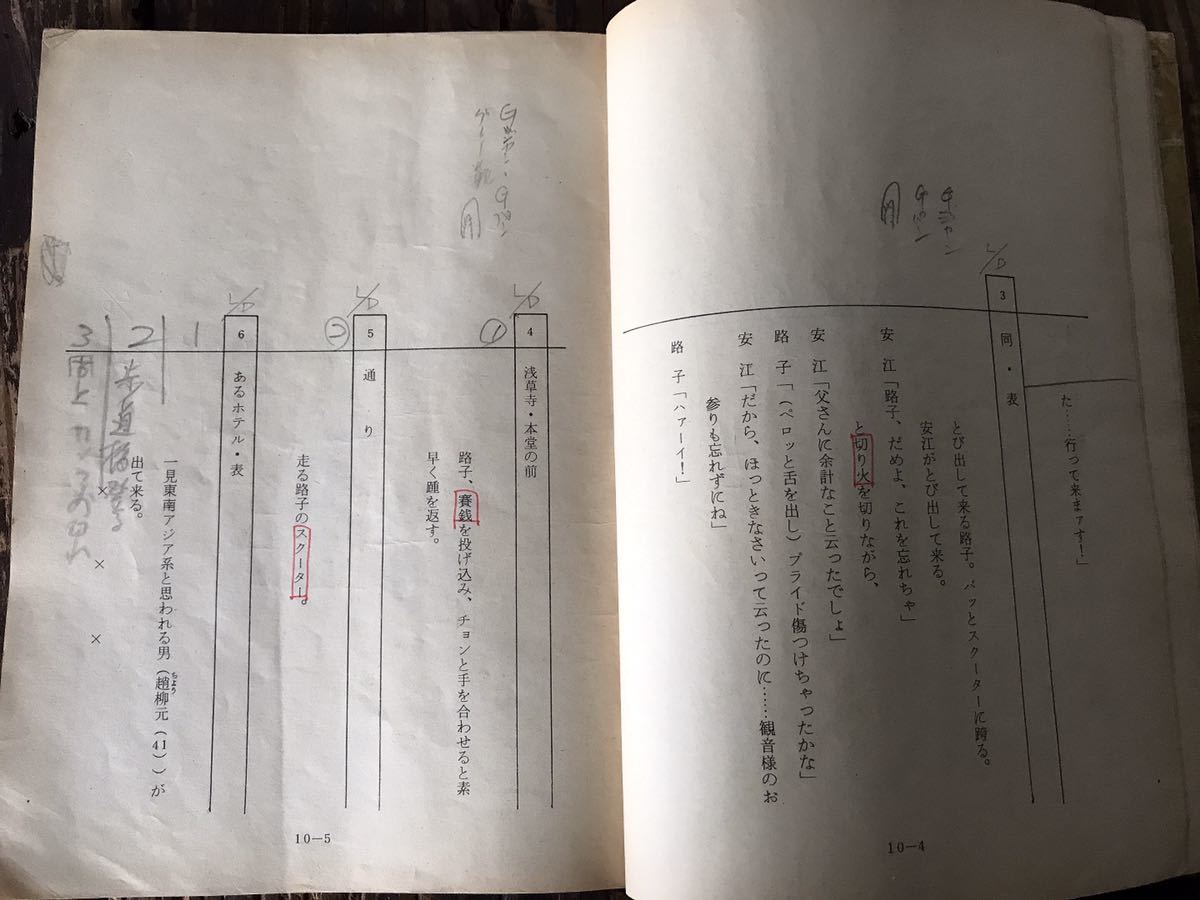 た……行って来まァす！」
L/D
3 同・表
とび出して来る路子。パッとスクーターに跨る。
安江がとび出して来る。
安江「路子、だめよ、これを忘れちゃ」
と切り火を切りながら、
安江「父さんに余計なこと云ったでしょ」
路子「（ペロッと舌を出し）プライド傷つけちゃったかな」
安江「だから、ほっときなさいって云ったのに……観音様のお
参りも忘れずにね」
路子「ハァーイ！」
Gジャン
Gパン
10—4
Gジャン・Gパン
L/D
4 浅草寺・本堂の前
①
路子、賽銭を投げ込み、チョンと手を合わせると素
早く踵を返す。
L/D
5 通り
走る路子のスクーター。
L/D
6 あるホテル・表
一見東南アジア系と思われる男（趙柳元（41））が
ちょう
出て来る。
1
2 歩道橋
3 同上
× × ×
10—5